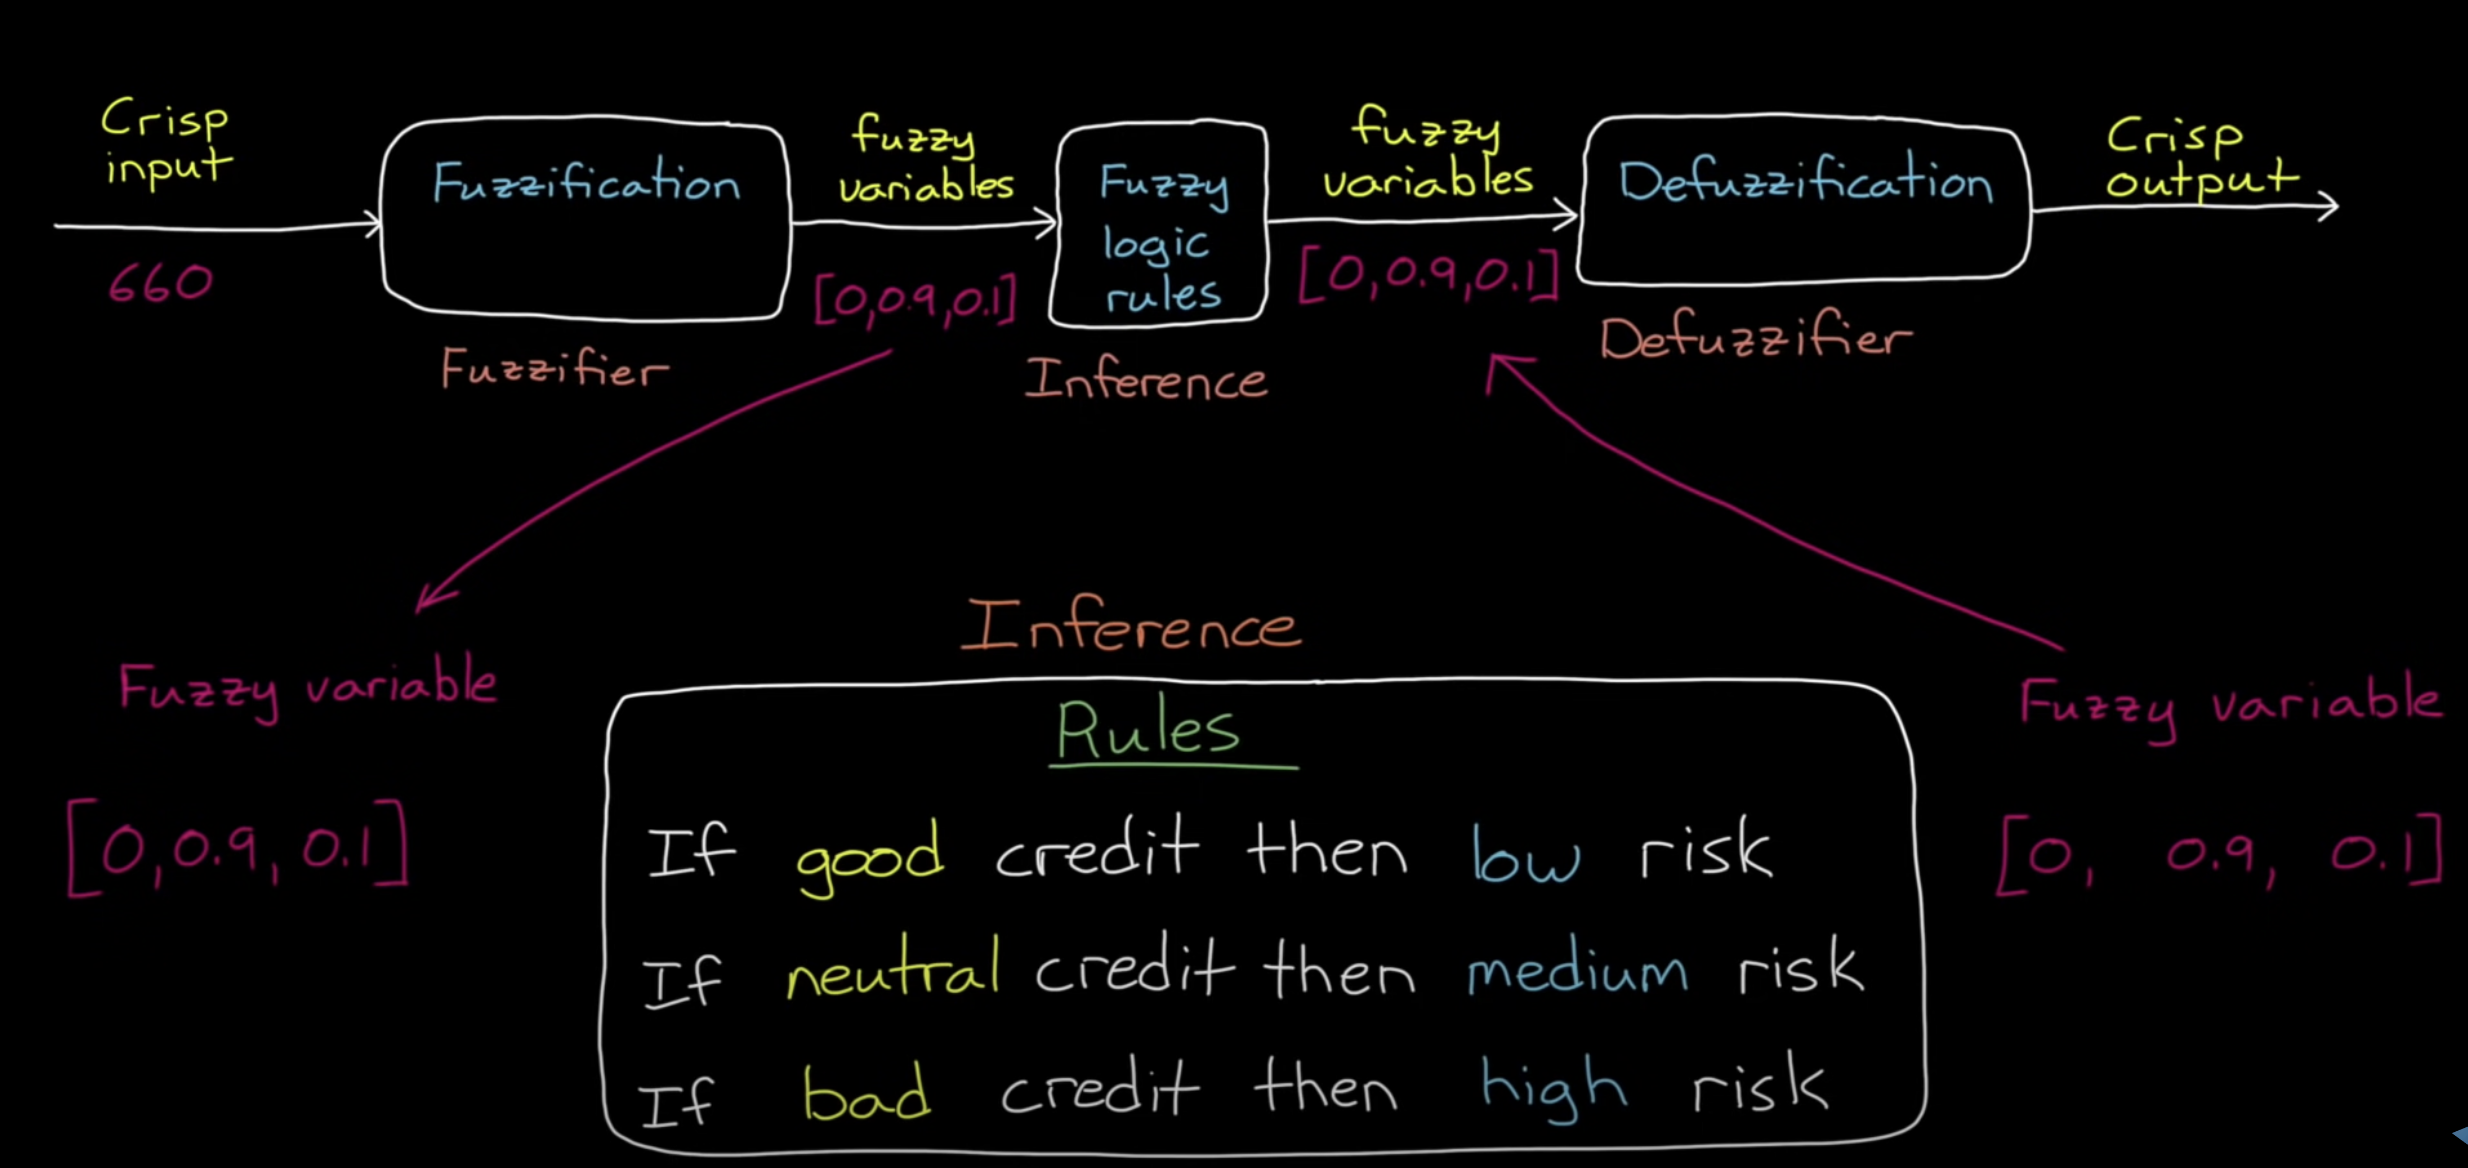 Crisp
input
660
Fuzzification
Fuzzifier
fuzzy
variables
[0,0.9,0.1]
Fuzzy
logic
rules
Inference
fuzzy
variables
[0,0.9,0.1]
Defuzzification
Defuzzifier
Crisp
output
Fuzzy variable
[0,0.9,0.1]
Inference
Rules
If good credit then low risk
If neutral credit then medium risk
If bad credit then high risk
Fuzzy variable
[0, 0.9, 0.1]